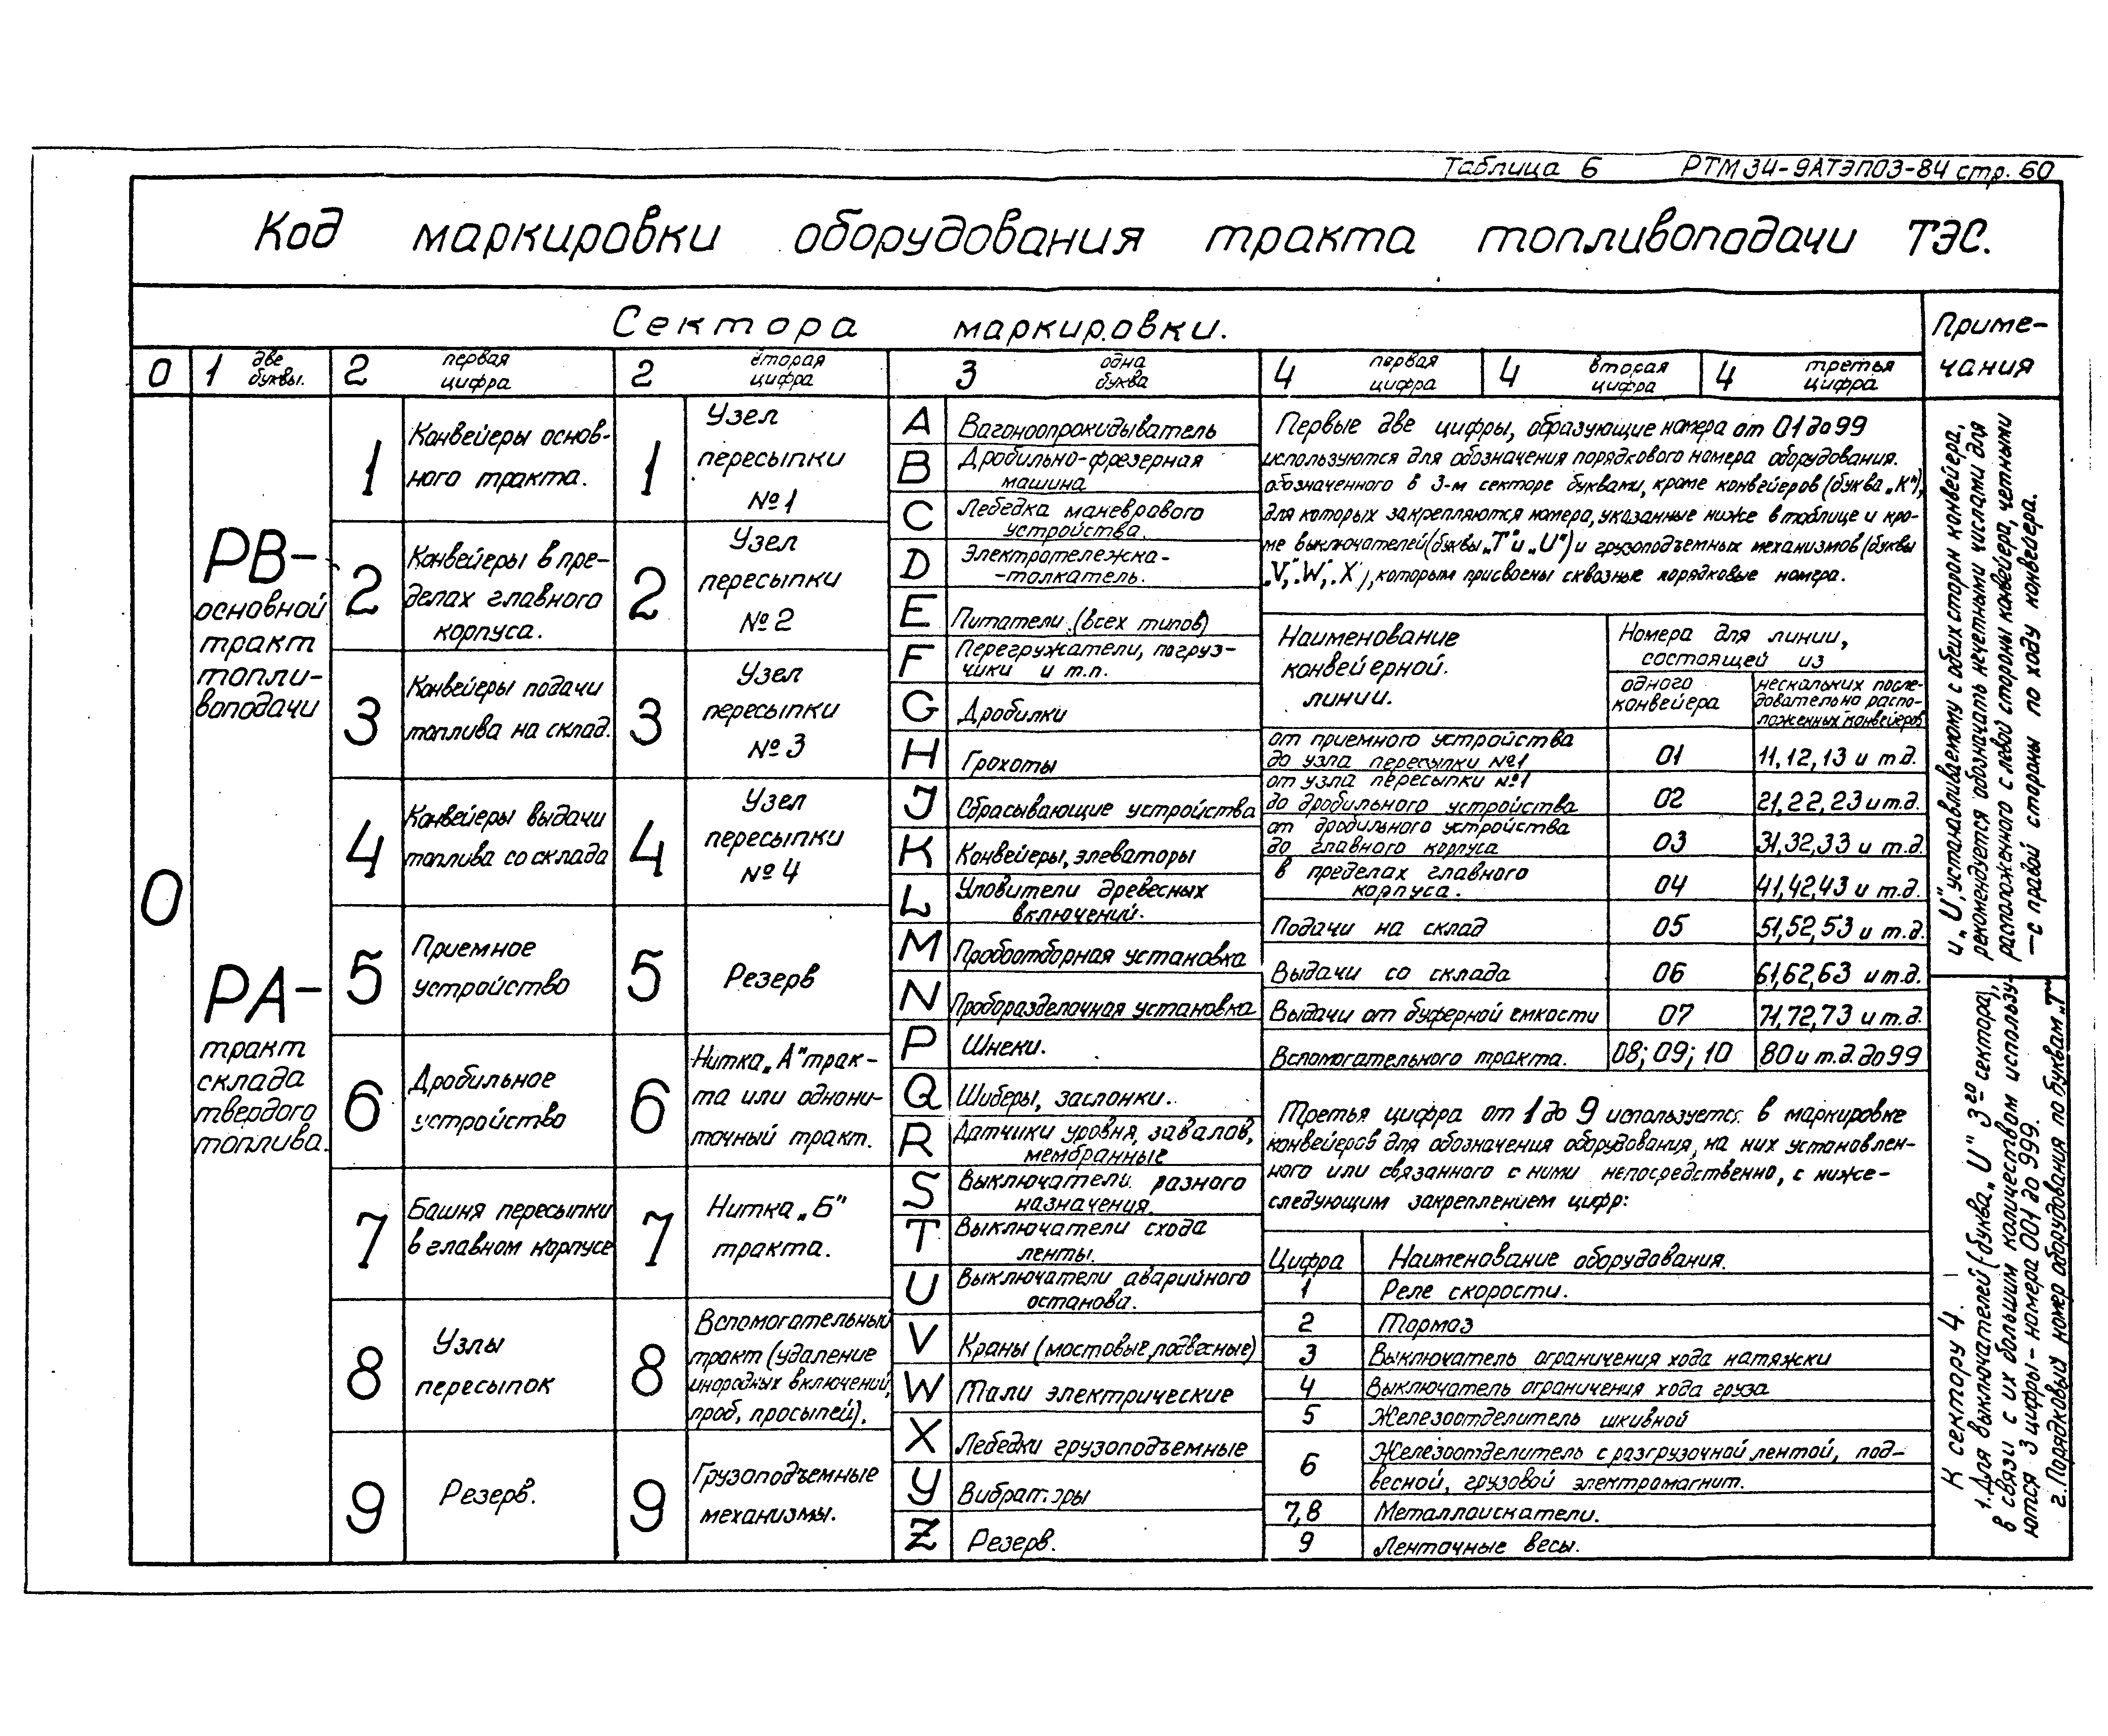 Таблица 6 РТМ 34-9АТЭП03-84 стр. 60
Код маркировки оборудования тракта топливоподачи ТЭС.
Сектора маркировки.
Приме-
чания
0
1 две
буквы.
2 первая
цифра
2 вторая
цифра
3 одна
буква
4 первая
цифра
4 вторая
цифра
4 третья
цифра
0
РВ-
основной
тракт
топли-
воподачи
РА-
тракт
склада
твердого
топлива.
1 Конвейеры основ-
ного тракта.
2 Конвейеры в пре-
делах главного
корпуса.
3 Конвейеры подачи
топлива на склад.
4 Конвейеры выдачи
топлива со склада
5 Приемное
устройство
6 Дробильное
устройство
7 Башня пересыпки
в главном корпусе
8 Узлы
пересыпок
9 Резерв.
1 Узел
пересыпки
№ 1
2 Узел
пересыпки
№ 2
3 Узел
пересыпки
№ 3
4 Узел
пересыпки
№ 4
5 Резерв
6 Нитка „А" трак-
та или однони-
точный тракт.
7 Нитка „Б"
тракта.
8 Вспомогательный
тракт (удаление
инородных включений,
проб, просыпей).
9 Грузоподъемные
механизмы.
A Вагоноопрокидыватель
B Дробильно-фрезерная
машина
C Лебедка маневрового
устройства.
D Электротележка-
-толкатель.
E Питатели (всех типов)
F Перегружатели, погруз-
чики и т.п.
G Дробилки
H Грохоты
J Сбрасывающие устройства
K Конвейеры, элеваторы
L Уловители древесных
включений.
M Пробоотборная установка
N Проборазделочная установка
P Шнеки.
Q Шиберы, заслонки.
R Датчики уровня, завалов,
мембранные
S Выключатели разного
назначения.
T Выключатели схода
ленты.
U Выключатели аварийного
останова.
V Краны (мостовые, подвесные)
W Тали электрические
X Лебедки грузоподъемные
Y Вибраторы
Z Резерв.
Первые две цифры, образующие номера от 01 до 99
используются для обозначения порядкового номера оборудования.
обозначенного в 3-м секторе буквами, кроме конвейеров (буква „К"),
для которых закрепляются номера, указанные ниже в таблице и кро-
ме выключателей (буквы „Т" и „U") и грузоподъемных механизмов (буквы
„V", „W", „X"), которым присвоены сквозные порядковые номера.
Наименование
конвейерной.
линии.
Номера для линии,
состоящей из
одного
конвейера
нескольких после-
довательно распо-
ложенных конвейеров
от приемного устройства
до узла пересыпки №1 01 11, 12, 13 и т.д.
от узла пересыпки №1
до дробильного устройства 02 21, 22, 23 и т.д.
от дробильного устройства
до главного корпуса 03 31, 32, 33 и т.д.
в пределах главного
корпуса. 04 41, 42, 43 и т.д.
Подачи на склад 05 51, 52, 53 и т.д.
Выдачи со склада 06 61, 62, 63 и т.д.
Выдачи от буферной емкости 07 71, 72, 73 и т.д.
Вспомогательного тракта. 08; 09; 10 80 и т.д. до 99
Третья цифра от 1 до 9 используется в маркировке
конвейеров для обозначения оборудования, на них установлен-
ного или связанного с ними непосредственно, с ниже-
следующим закреплением цифр:
Цифра Наименование оборудования.
1 Реле скорости.
2 Тормоз
3 Выключатель ограничения хода натяжки
4 Выключатель ограничения хода груза
5 Железоотделитель шкивной
6 Железоотделитель с разгрузочной лентой, под-
весной, грузовой электромагнит.
7,8 Металлоискатели.
9 Ленточные весы.
К сектору 4.
1. Для выключателей (буква „U" 3го сектора),
в связи с их большим количеством использу-
ются 3 цифры - номера 001 до 999.
2. Порядковый номер оборудования по буквам „Т"
и „U", устанавливаемому с обеих сторон конвейера,
рекомендуется обозначать нечетными числами для
расположенного с левой стороны конвейера, четными
- с правой стороны по ходу конвейера.